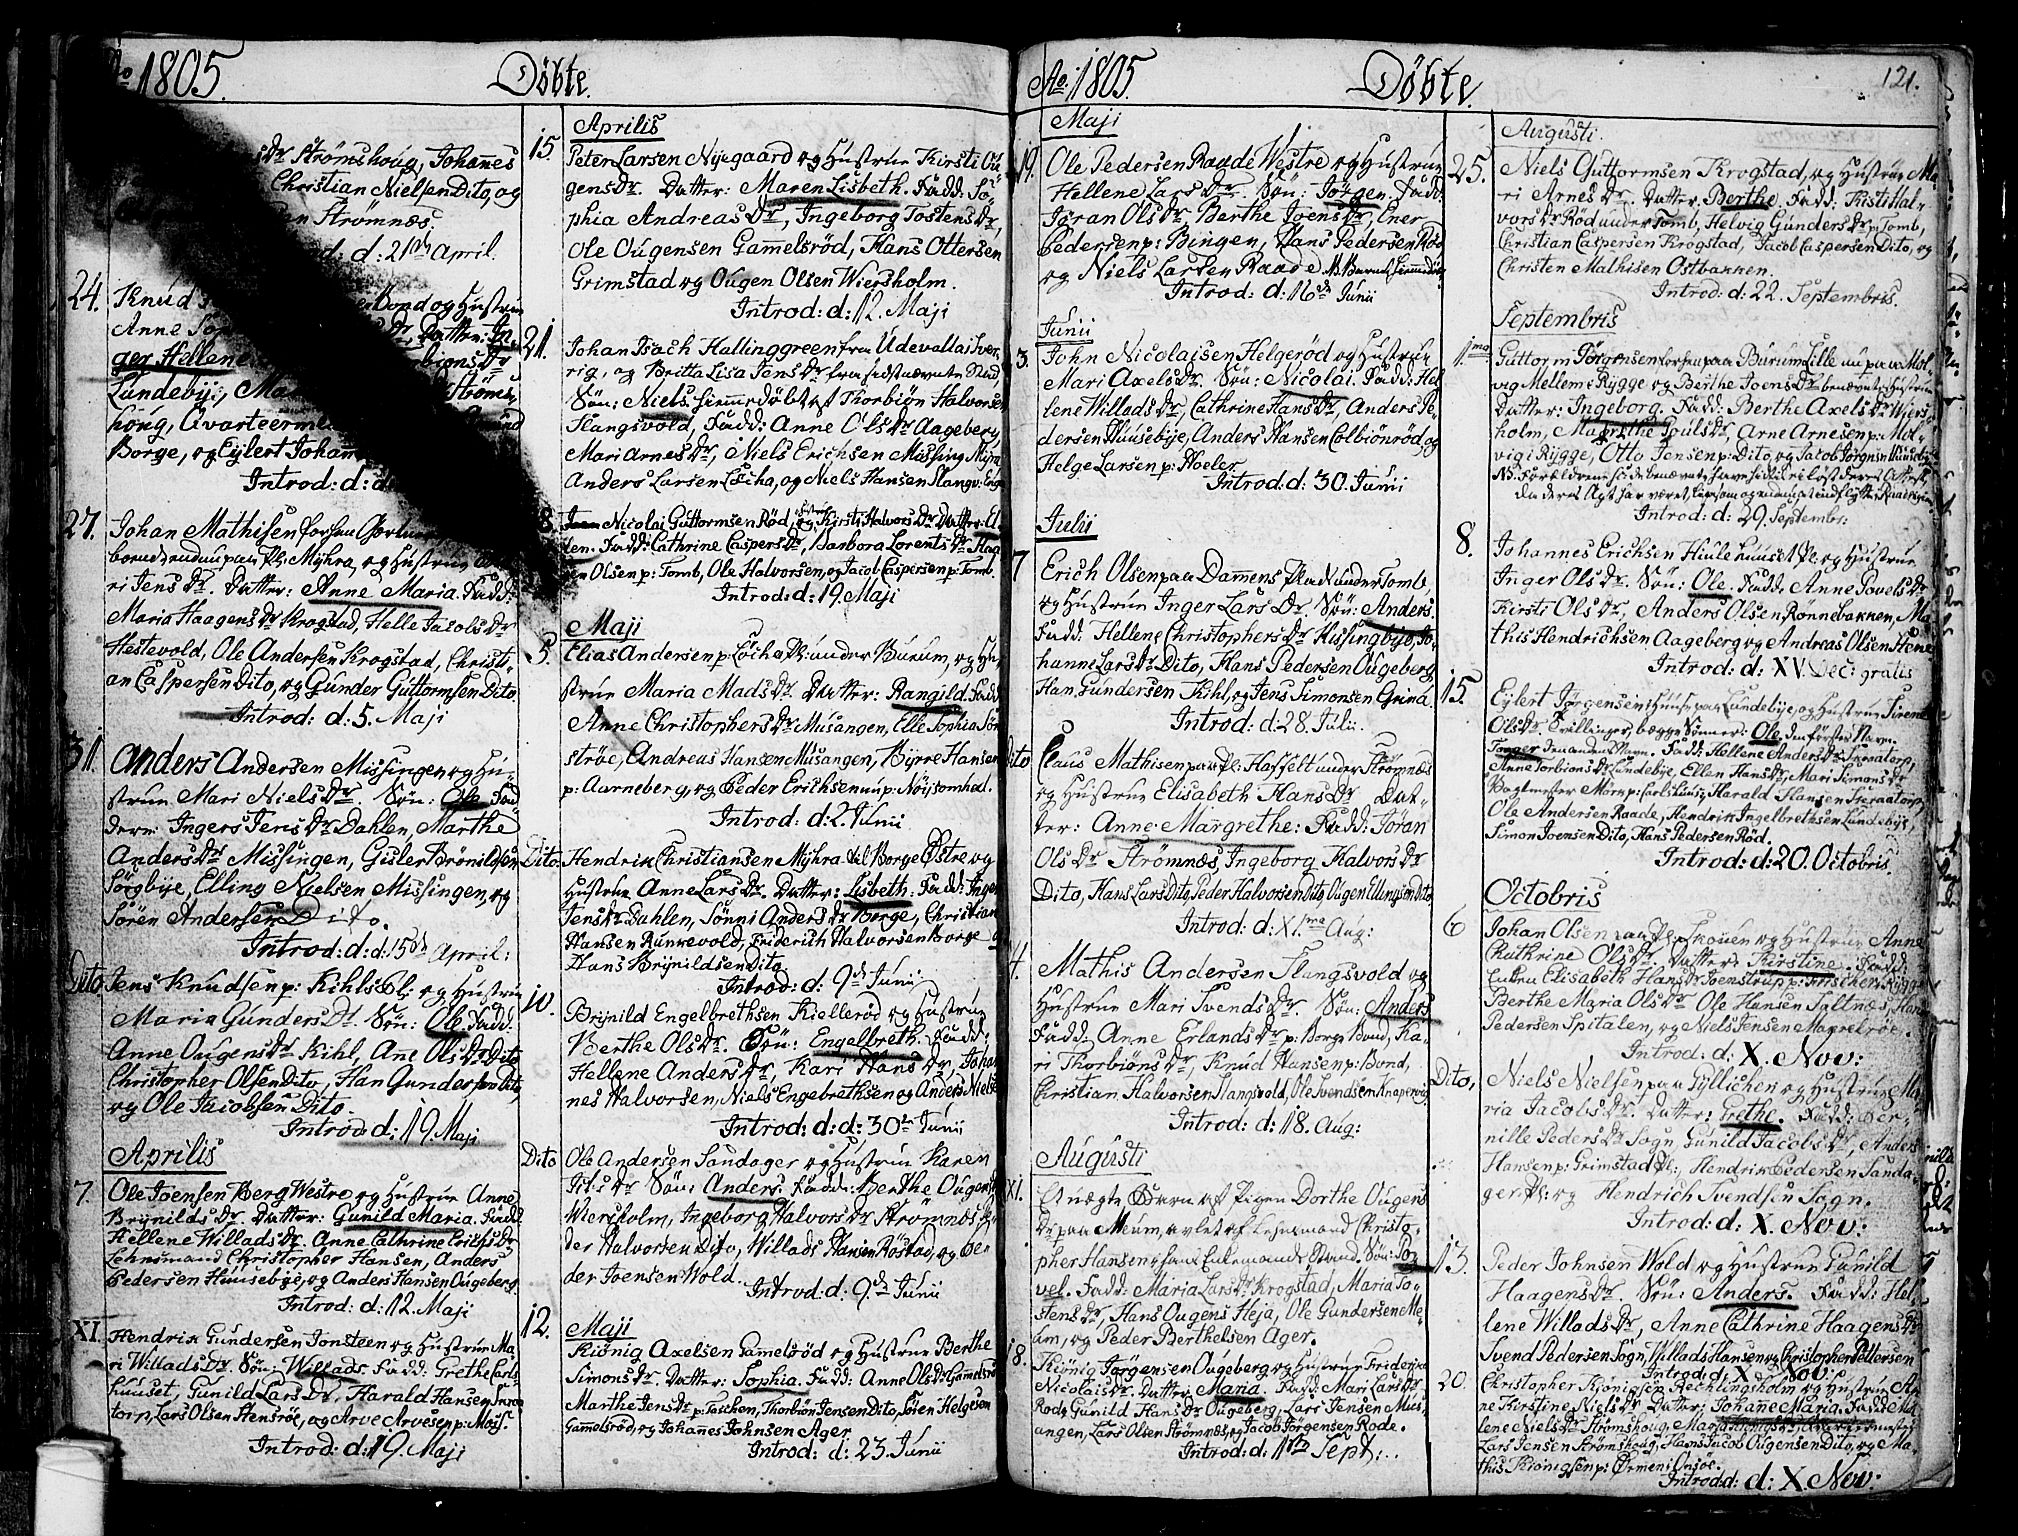 Ao 1805. Døbte.
Strømshoug, Johanes
Christian Nielsen Dito, og
Strømnæs.
d: 21de April.
24. Knud og Hustrue
Anne Datter: In-
ger Hellene
Lundebÿe, Strøms-
houg,
Borge, og Eÿlert Johan
Introd: d:
27. Johan Mathisen
paa Pl: Mÿhra, og Hustrue
ri Jens Dr. Datter: Anne Maria. Fadd:
Maria Haagens Dr Krogstad, Helle Jacobs Dr
Hestevold, Ole Andersen Krogstad, Christi-
an Caspersen Dito, og Gunder Guttormsen Dito
Introd: d: 5. Maji
31. Anders Andersen Missingen og Hu-
strue Mari Niels Dr. Søn: Ole. Fad
dere: Ingers Jens Dr Dahlen, Marthe
Anders Dr Missingen, Gisler Brønildsen
Sørgbÿe, Elling Nielsen Missingen, og
Sören Andersen Dito.
Introd: d: d: 15de April:
Dito Jens Knudsen p: Kihls Pl: og Hustrue
Maria Gunders Dr. Søn: Ole. Fadd:
Anne Ougens Dr Kihl, Ane Ols Dr Dito
Christopher Olsen Dito, Han Gundersen Dito,
og Ole Jacobsen Dito.
Introd: d: 19. Maji
Aprilis
7. Ole Joensen Berg Westre og Hustrue Anne
Brÿnilds Dr. Datter: Gunild Maria. Fadd
Hellene Willads Dr. Anne Cathrine Erichs Dr
Lehnsmand Christopher Hansen, Anders
Pedersen Huusebÿe, og Anders Hansen Ougeberg
Introd: d: 12. Maji
XI. Hendrik Gundersen Jonsteen og Hustrue Ma-
ri Willads Dr. Søn: Willads. Fadd: Grethe Carls-
huuset, Gunild Lars Dr, Harald Hansen
torp, Lars Olsen Stensröe, og Arve Arvesen p: Moss.
Introd: d: 19. Maji
Aprilis
15. Peter Larsen Nÿegaard og Hustrue Kirsti Ou-
gens Dr. Datter: Maren Lisbeth. Fadd: So-
phia Andreas Dr, Ingeborg Tostens Dr,
Ole Ougensen Gamelsröd, Hans Ottersen
Grimstad og Ougen Olsen Wiersholm.
Introd: d: 12. Maji
21. Johan Isach Hallinggreen fra Udevalla i Sver-
rig, og Britta Lisa Jens Dr fra sidstnævnte Stæd
Søn: Niels hiemedöbt af Thorbiön Halvorsen
Slangsvold, Fadd: Anne Ols Dr Aageberg,
Mari Arnes Dr, Niels Erichsen Missing Mÿra
Anders Larsen Löcha, og Niels Hansen Slangv: Enge
8. Nicolai Guttormsen Röd, og Kirsti Halvors Dr Datter: El-
len. Fadd: Cathrine Caspers Dr, Barbora Lorents Dr
Olsen p: Tomb, Ole Halvorsen, og Jacob Caspersen p: Tomb.
Introd: d: 19. Maji
Maji
5. Elias Andersen p: Löcha Pl: under Burum, og Hu-
strue Maria Mads Dr. Datter: Rangild. Fadd
Anne Christophers Dr Musangen, Elle Sophia
ströe, Andreas Hansen Musangen, Bÿrre Hansen
p: Aurneberg, og Peder Erichsen nu p: Nöÿsomhed.
Introd: d: 2. Junii
Dito Hendrik Christiansen Mÿhra til Borge Östre og
Hustrue Anne Lars Dr. Datter: Lisbeth. Fadd: Inger
Jens Dr Dahlen, Sönni Anders Dr Borge, Christian
Hansen Runnevold, Friderich Halvorsen Borge
Hans Brÿnildsen Dito
Introd: d: 9de Junii
10. Brÿnild Engelbrethsen Kiellerød og Hustrue
Berthe Ols Dr. Søn: Engelbreth. Fadd:
Hellene Anders Dr, Kari Hans Dr, Johan-
nes Halvorsen, Niels Engebrethsen og Anders Nielsen
Introd: d: d: 30te Junii
Dito Ole Andersen Sandager og Hustrue Karen
Dr Søn: Anders. Fadd: Berthe Ougens Dr
Wiersholm, Ingeborg Halvors Dr Strømnæs, Pe-
der Halvorsen Dito, Willads Hansen Röstad, og Pe-
der Joensen Wold.
Introd: d: 9de Junii
Maji
12. Kiönig Axelsen Gamelsröd og Hustrue Berthe
Simons Dr. Datter: Sophia. Fadd: Anne Ols Dr Gamelsröd
Marthe Jens Dr p: Taschem, Thorbiön Jensen Dito, Sören Helgesen
Gamelsröd, og Johanes Johnsen Ager.
Introd: d: 23. Junii
Ao 1805. Døbte. 121.
Maji
19. Ole Pedersen Raade Westre og Hustrue
Hellene Lars Dr. Søn: Jörgen. Fadd:
Jöran Ols Dr. Berthe Joens Dr, Ener
Pedersen p: Bingen, Hans Pedersen Röd
og Niels Larsen Raade.
Introd: d: 16de Junii
Junii
3. John Nicolaisen Helgeröd og Hustrue
Mari Axels Dr. Søn: Nicolai. Fadd: Hel
lene Willads Dr, Cathrine Hans Dr, Anders Pe-
dersen Huusebÿe, Anders Hansen Colbiönröd, og
Helge Larsen p: Hoeler.
Introd: d: 30. Junii
Julii
7 Erich Olsen paa Damens Plads under Tomb,
og Hustrue Inger Lars Dr. Søn: Anders
Fadd: Hellene Christophers Dr Kissingbÿe, Jo-
hanne Lars Dr Dito, Hans Pedersen Ougeberg
Han. Gundersen Kihl, og Jens Simonsen Grina.
Introd: d: 28. Julii.
Dito Claus Mathisen paa Pl: Haffelt under Strømnæs
og Hustrue Elisabeth Hans Dr Dat-
ter: Anne Margrethe: Fadd: Jöran
Ols Dr Strømnæs, Ingeborg Halvors Dr
Dito, Hans Lars Dito, Peder Halvorsen Dito, Ougen Ellingsen Dito
Introd: d: XI.ma Aug:
4. Mathis Andersen Slangsvold og
Hustrue Mari Svends Dr. Søn: Anders
Fadd: Anne Erlands Dr p: Borge Bond, Ka-
ri Thorbiöns Dr, Knud Hansen p: Bond,
Christian Halvorsen Slangsvold, Ole Svendsen Knapervig
Introd: d: 18. Aug:
Augusti
XI. Et uægte Barn af Pigen Dorthe Ougens
Dr paa Meum, avlet af Lehnsmand Christo-
pher Hansen i hans Enkemands Stand. Søn: Po-
vel. Fadd: Maria Lars Dr Krogstad, Maria To-
stens Dr, Hans Ougens Heja, Ole Gundersen Me-
um, og Peder Berthelsen Ager.
18. Kiönig Jörgensen Ougeberg, og Hustrue Friderike
Nicolais Dr. Datter: Maria. Fadd: Mari Lars Dr
Rod, Gunild Hans Dr Ougeberg, Lars Jensen Mus-
angen, Lars Olsen Strømnæs, og Jacob Jörgensen Rode.
Introd: d: 1te Sept:
Augusti
25. Niels Guttormsen Krogstad, og Hustrue Ma-
ri Arnes Dr. Datter: Berthe. Fadd: Kisti Hal-
vors Dr Rod under Tomb, Helvig Gunders Dr p: Tomb,
Christian Caspersen Krogstad, Jacob Caspersen Dito, og
Christen Mathisen Ostbakken.
Introd: d: 22. Septembris.
Septembris
1ma Guttorm Jörgensen forhen paa Burum Lille nu paa Mol-
vig Mellem i Rÿgge og Berthe Joens Dr benævnte Hustrue
Datter: Ingeborg. Fadd: Berthe Axels Dr Wiers-
holm, Magrethe Pouls Dr, Arne Arnesen p: Mol-
vig i Rÿgge, Otto Jensen p: Dito, og Jacob Jörgensen Huusebÿe
Introd: d: 29. Septembr:
8. Johannes Erichsen Huuset Pl: og Hustrue
Inger Ols Dr. Søn: Ole. Fadd: Anne Povels Dr
Kirsti Ols Dr, Anders Olsen Rønnebakken, Ma
this Hendrichsen Aageberg og Andreas Olsen Hene
Introd: d: XV. Dec: gratis
15. Eÿlert Jörgensen paa Lundebÿe, og Hustrue Sirene
Ols Dr. Tvillinger, begge Sönner: Ole den förstes Navn.
Torger den andens Navn. Fadd: Hellene Anders Dr
Anne Torbions Dr Lundebÿe, Ellen Hans Dr, Mari Simons Dr
Harald Hansen
Ole Andersen Raade, Hendrik Ingelbrethsen Lundebÿe,
Simon Joensen Dito, Hans Pedersen Röd.
Introd: d: 20. Octobris.
Octobris
6 Johan Olsen paa Pl. Skouen og Hustrue Anne
Chathrine Ols Dr. Datter: Kirstine. Fadd:
Elisabeth Hans Dr
Berthe Maria Ols Dr Ole Hansen Saltnæs, Hans
Pedersen Spitalen, og Niels Jensen Magreröe.
Introd: d: X. Nov:
Dito, Niels Nielsen paa Gÿllichen og Hustrue Ma-
ria Jacobs Dr. Datter: Grethe. Fadd: Ber-
nille Peders Dr Sogn, Gunild Jacobs Dr, Anders
Hansen p: Grimstad Pl:, Hendrik Pedersen Sanda-
ger Pl: og Hendrich Svendsen Sogn.
Introd: d: X. Nov:
13. Peder Johnsen Wold og Hustrue Gunild
Haagens Dr. Søn: Anders. Fadd: Hel-
lene Willads Dr, Anne Cathrine Haagens Dr
Svend Pedersen Sogn, Willads Hansen og Christopher Pettersen
Introd: d: X. Nov:
20. Christopher Kiönigsen Rechlingsholm og Hustrue An-
ne Kirstine Niels Dr Datter: Johane Maria. Fadd: Ma
lene Niels Dr Strømshoug, Mari Kiönigs Dr
Lars Jensen Strømshoug, Hans Jacob Ougensen Dito, og Ma-
this Kiönigsen p: Ørmen i Onsöe.
Introd: d: d: X. Nov: